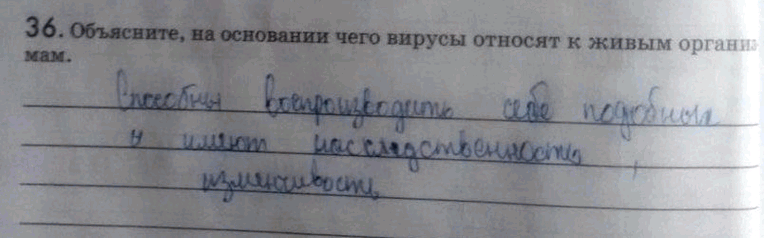 36. Объясните, на основании чего вирусы относят к живым органи
мам.
Способны воспроизводить себе подобных
и имеют наследственность,
изменчивость